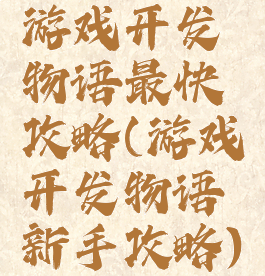 游戏开发
物语最快
攻略(游戏
开发物语
新手攻略)